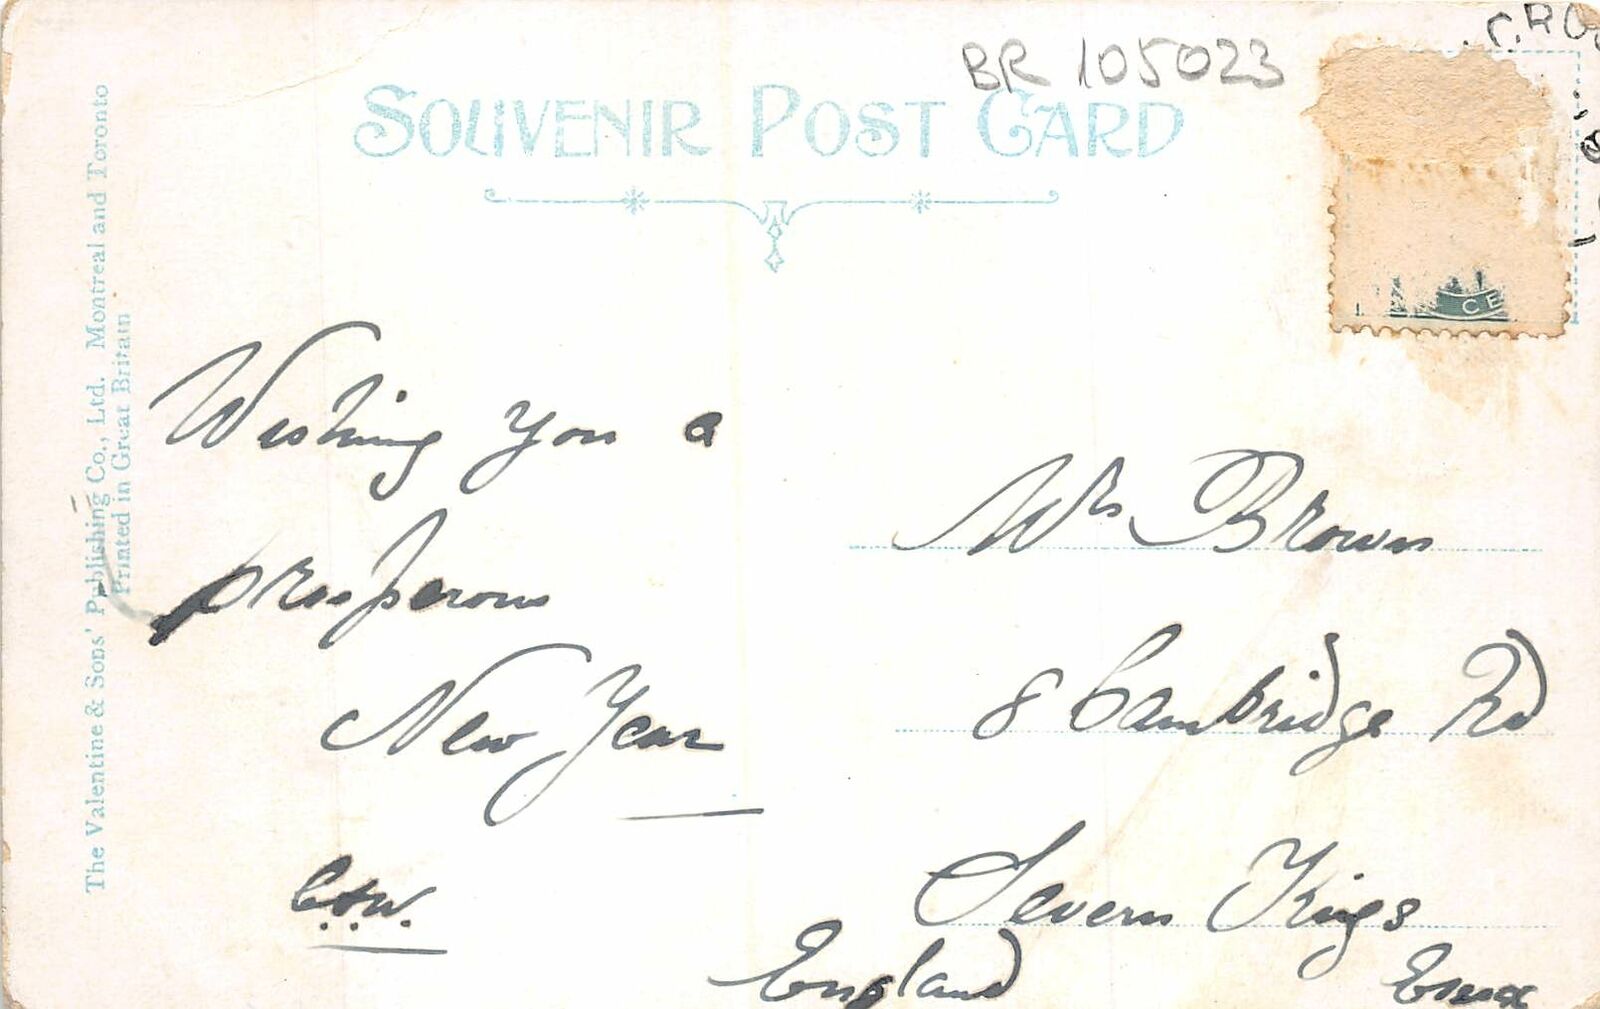 BR 105023
.CROS
SOUVENIR POST CARD
CE
The Valentine & Sons' Publishing Co., Ltd. Montreal and Toronto
Printed in Great Britain
Wishing you a
prosperous
New Year
C.H.W.
Mrs Brown
8 Cambridge Rd
Seven Kings
Essex
England